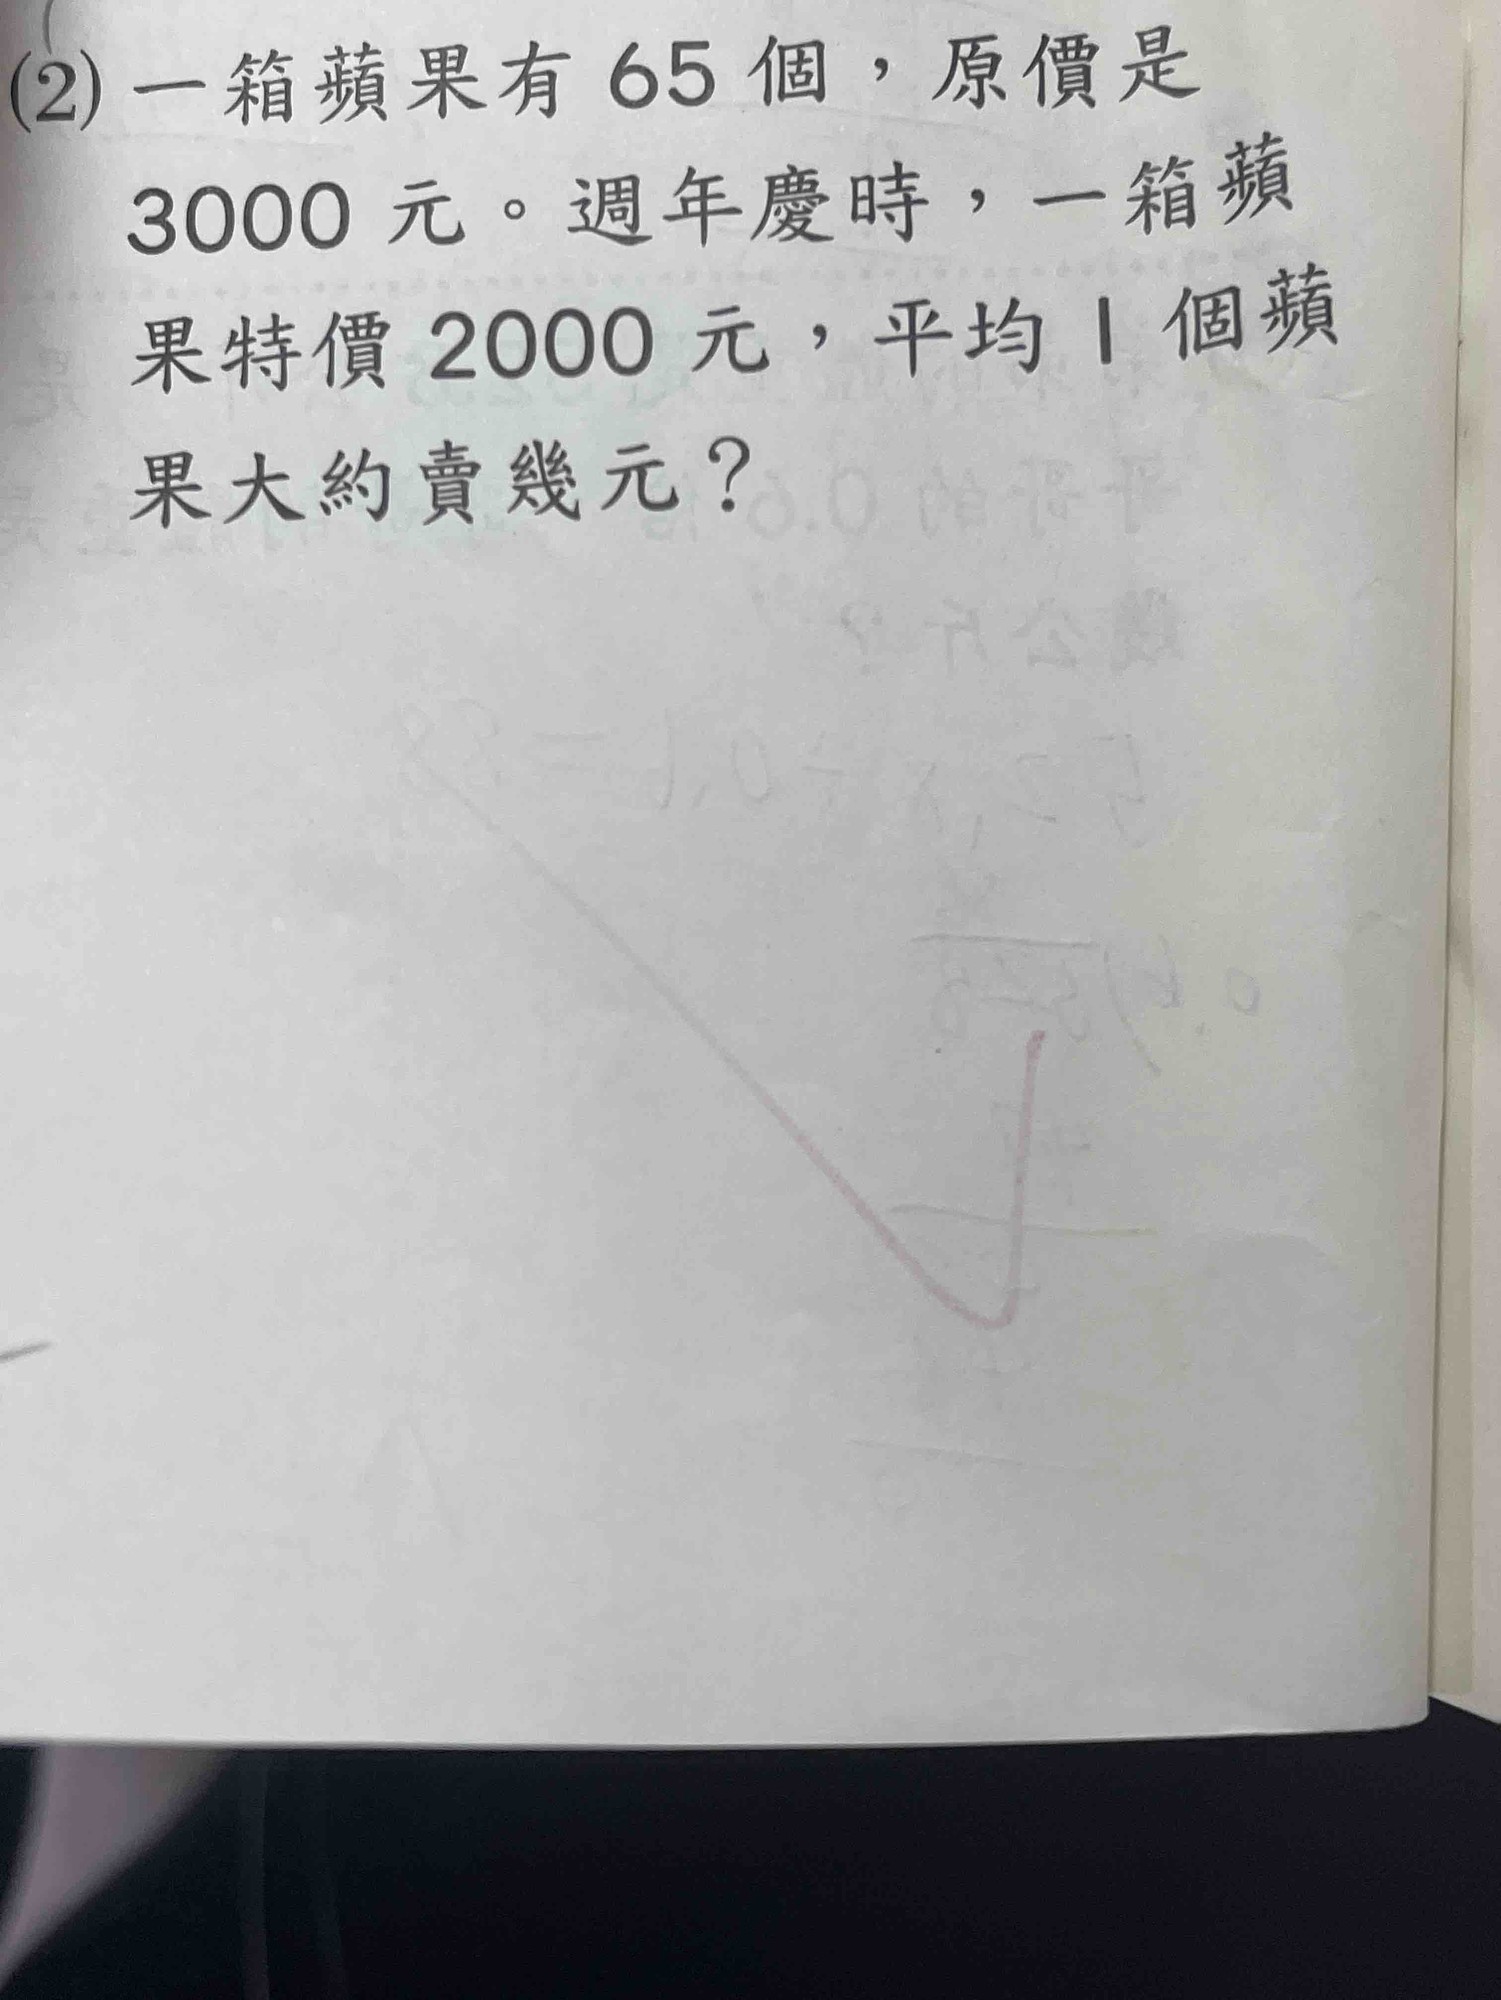 (2) 一箱蘋果有 65 個，原價是
3000 元。週年慶時，一箱蘋
果特價 2000 元，平均 1 個蘋
果大約賣幾元？